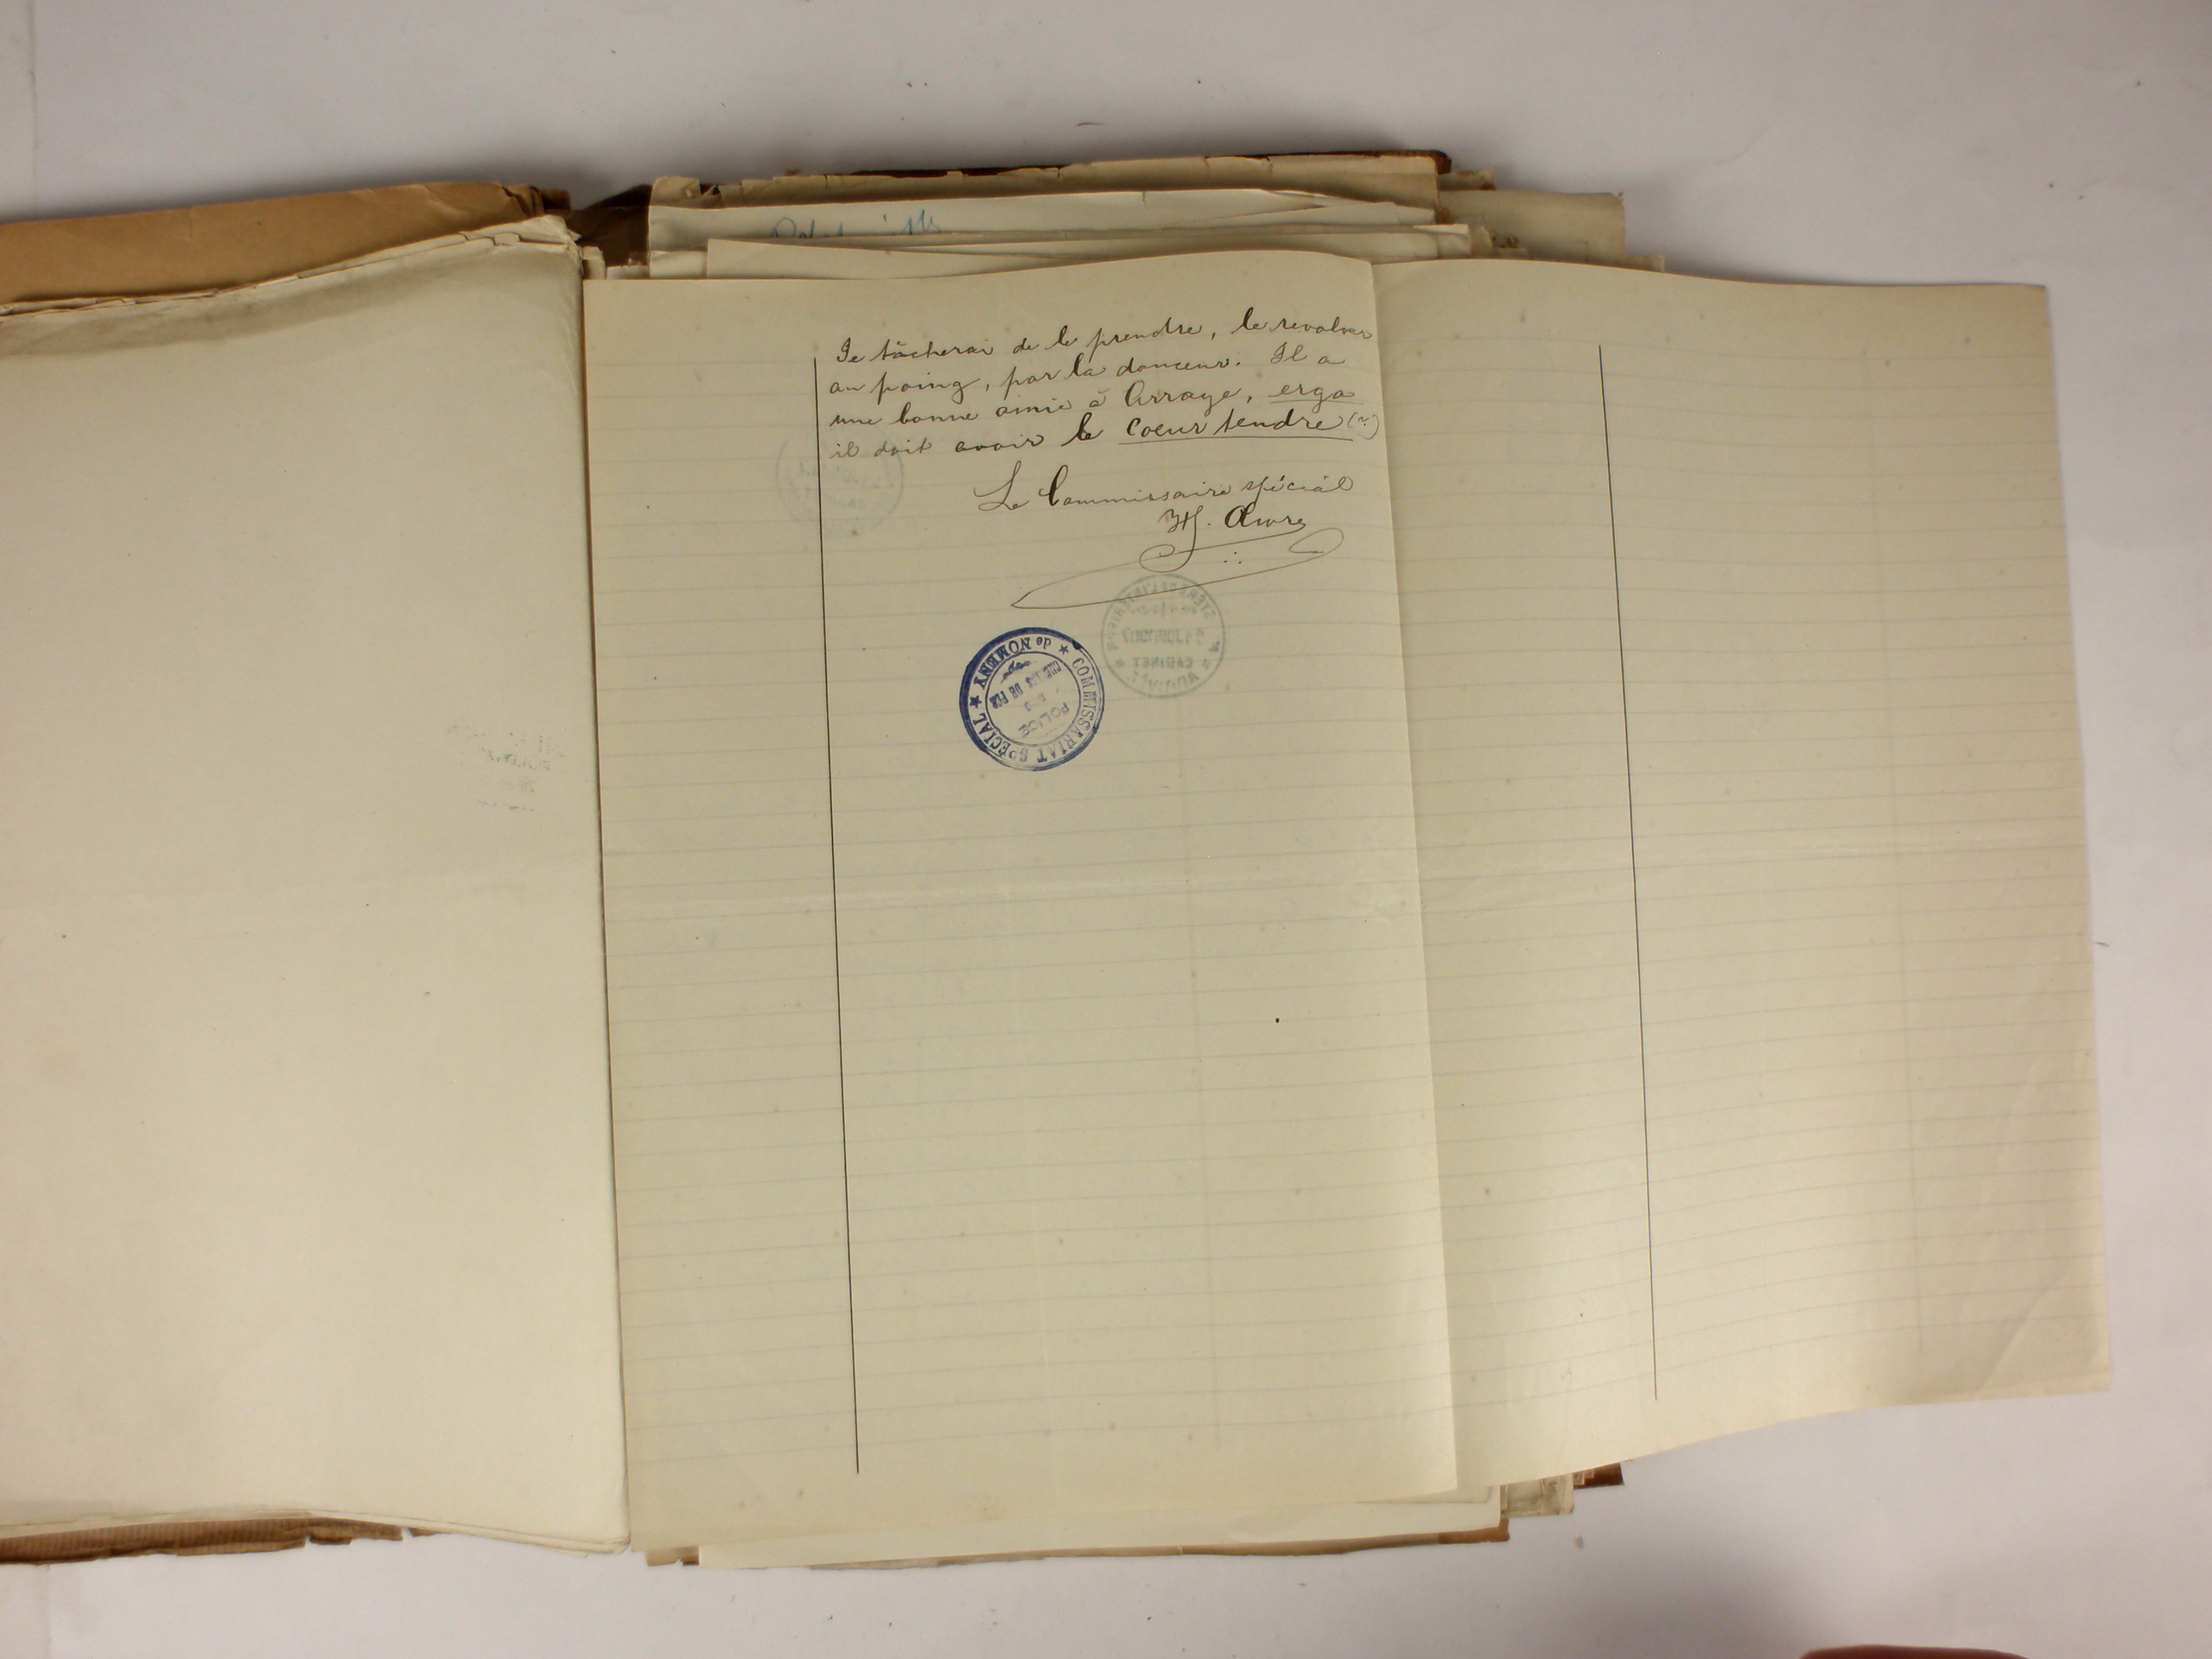 Je tâcherai de le prendre, le revolver
au poing, par la douceur. Il a
une bonne amie à Arraye, ergo
il doit avoir le coeur tendre (?)
Le Commissaire spécial
COMMISSARIAT SPÉCIAL ★ de NOMENY ★
POLICE
DES
CHEMINS DE FER
CABINET